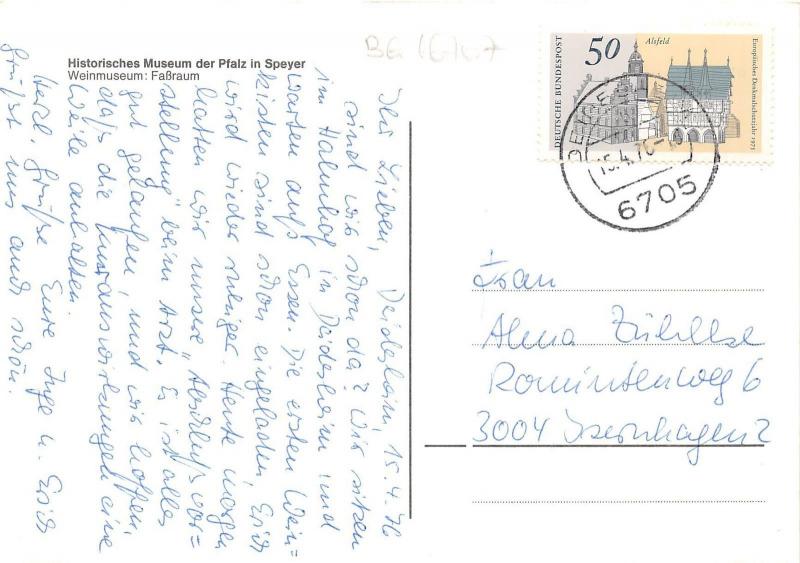 Historisches Museum der Pfalz in Speyer
Weinmuseum: Faßraum
BG 16/7.7
DEUTSCHE BUNDESPOST
50
Alsfeld
Europäisches Denkmalschutzjahr 1975
15.4.76
6705
Deidesheim, 15.4.76
Ihr Lieben,
sind wir schon da? Wir sitzen
im Hahnhof in Deidesheim und
warten aufs Essen. Die ersten Wein=
kisten sind schon eingeladen. Erich
wird wieder ruhiger. Heute morgen
hatten wir unsere "Abschlußvor=
stellung" beim Arzt. Es ist alles
gut gelaufen, und wir hoffen,
daß die Kurauswirkungen eine
Weile anhalten.
Herzl. Grüße Eure Inge u. Erich
grüßt mir auch schön.
Frau
Alma
Romintenweg 6
3004 Isernhagen 2